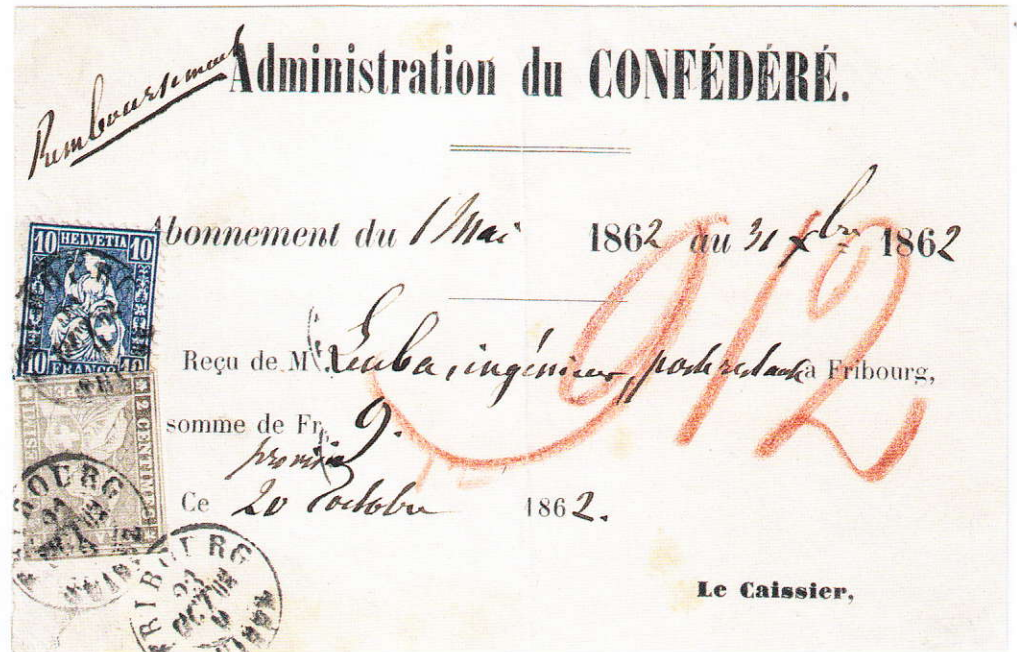 Remboursement
Administration du CONFÉDÉRÉ.
Abonnement du 1 Mai 1862 au 31 Xbre 1862
10 HELVETIA 10
10 FRANCO 10
Reçu de M Leuba, ingénieur, poste restante a Fribourg,
912
somme de Fr. 9.
2 CENTIMES
Ce 20 octobre 1862.
FRIBOURG
FRIBOURG
23
OCT
Le Caissier,